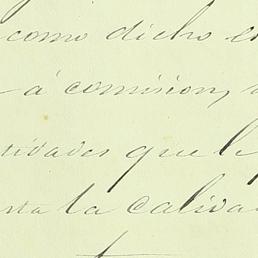 como dicho
á comision,
tidades que le
la calida